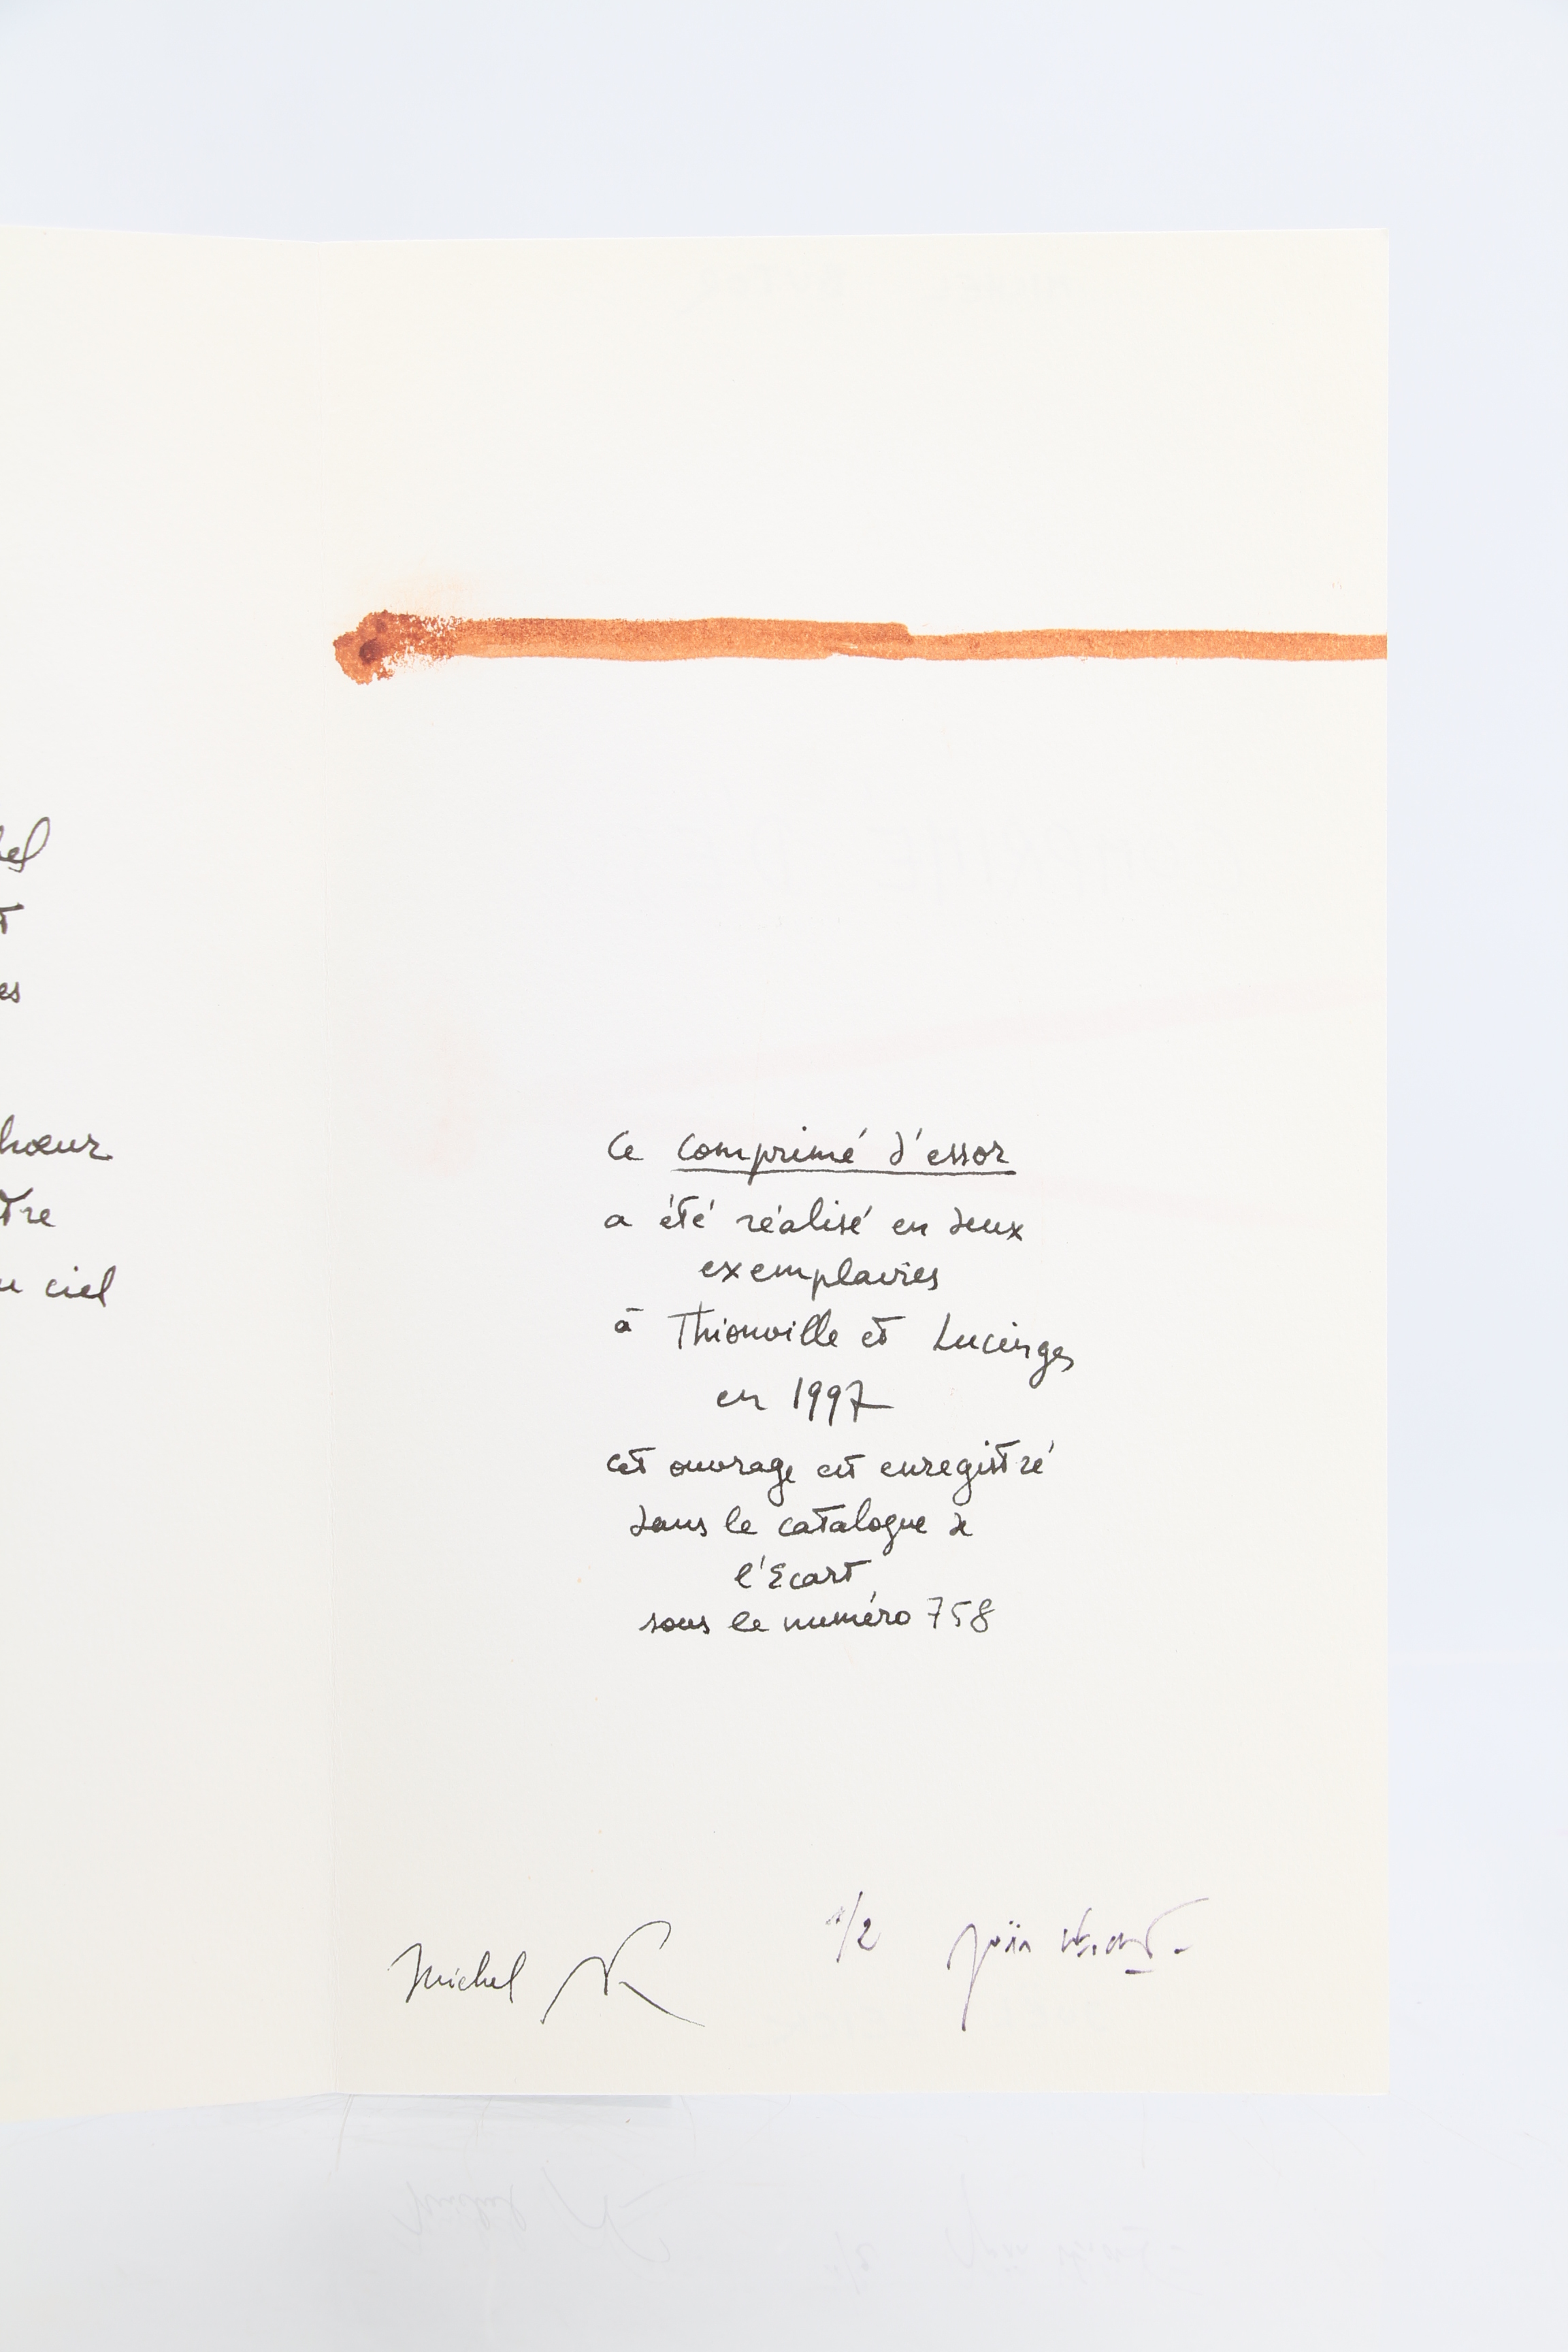 el
t
es
hœur
tre
u ciel
Ce comprimé d'essor
a été réalisé en deux
exemplaires
à Thionville et Lucinges
en 1997
cet ouvrage est enregistré
dans le catalogue de
l'Écart
sous le numéro 758
1/2
Michel